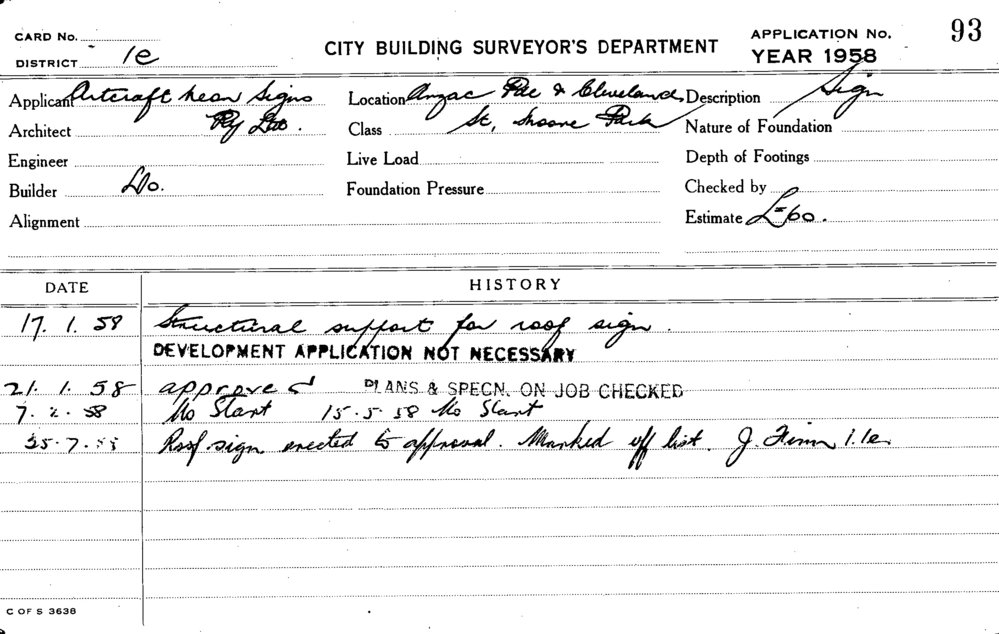 CARD No.
CITY BUILDING SURVEYOR'S DEPARTMENT
APPLICATION No. 93
DISTRICT 1e
YEAR 1958
Applicant Artcraft Neon Signs
Location Anzac Pde & Cleveland
Description Sign
Architect Pty Ltd.
Class St, Moore Park
Nature of Foundation
Engineer
Live Load
Depth of Footings
Builder Do.
Foundation Pressure
Checked by
Alignment
Estimate £60.
DATE HISTORY
17. 1. 58 Structural support for roof sign.
DEVELOPMENT APPLICATION NOT NECESSARY
21. 1. 58 approved PLANS & SPECN. ON JOB CHECKED
7. 2. 58 No Start 15-5-58 No Start
25-7-58 Roof sign erected to approval. Marked off list. J. Finn 1.1e.
C OF S 3638